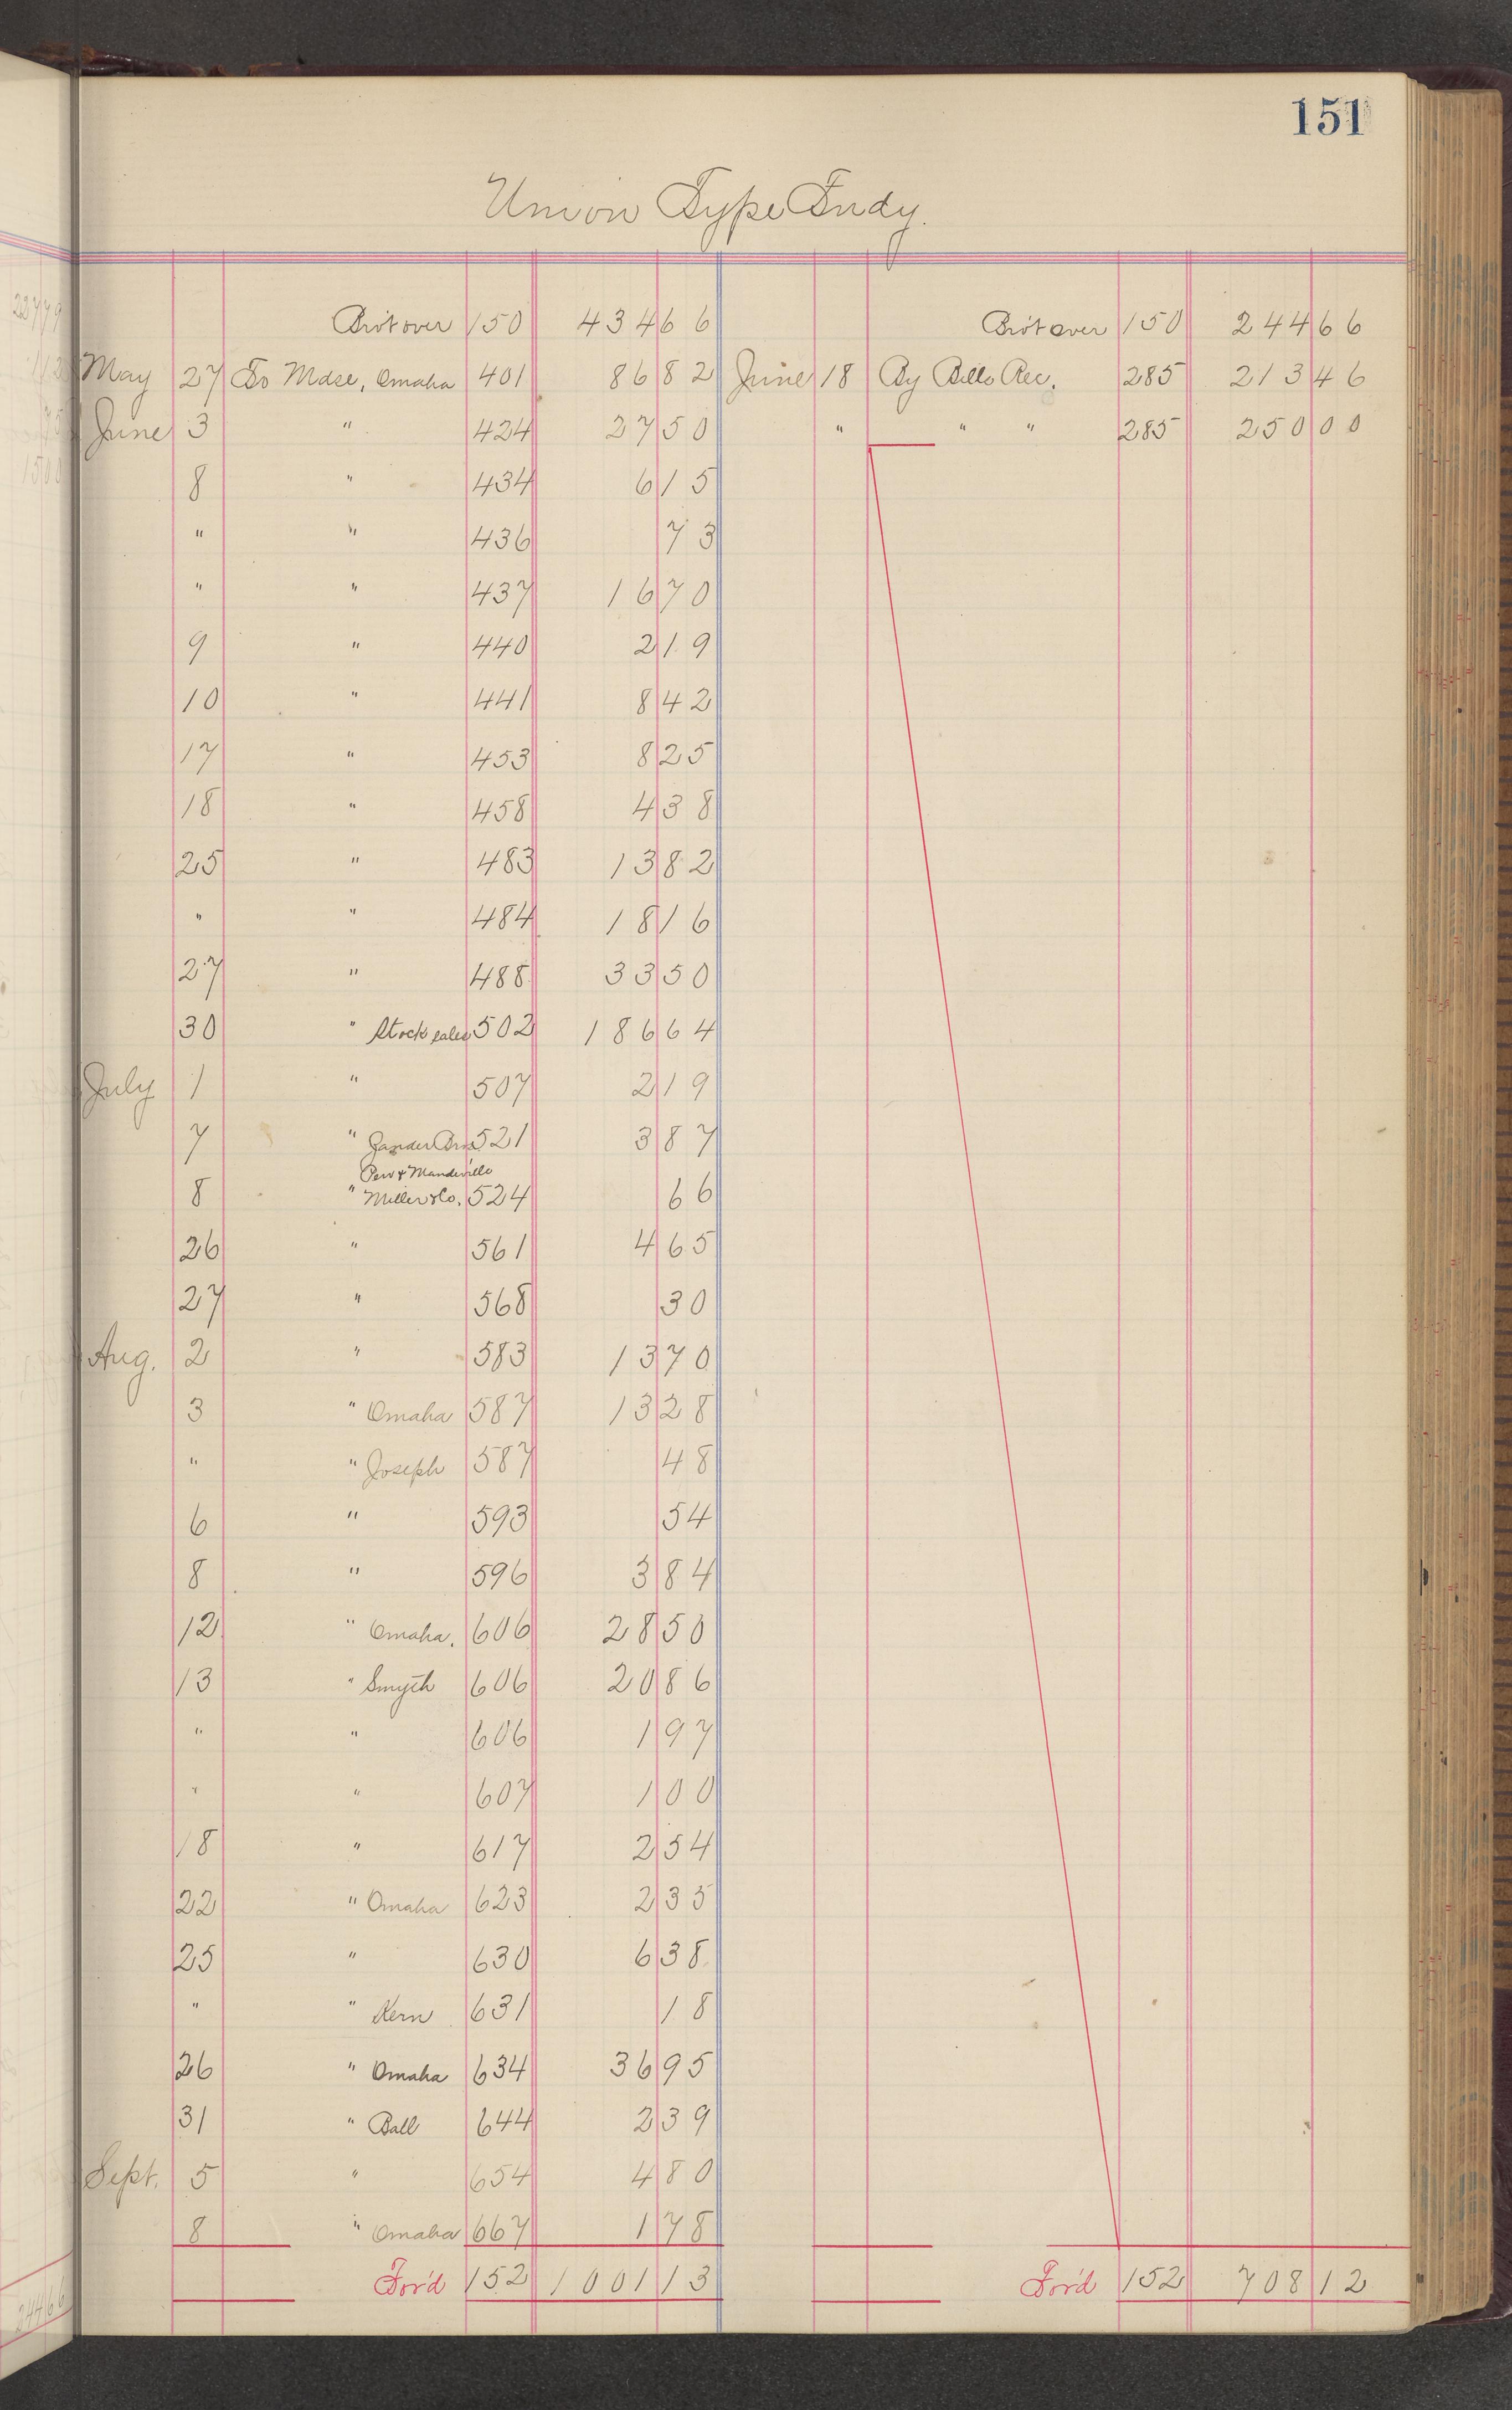 151
Union Type Fndy.
Bro't over 150 434 66 Bro't over 150 244 66
May 27 To Mdse, Omaha 401 86 82 June 18 By Bills Rec. 285 213 46
June 3 " 424 27 50 " " " 285 250 00
8 " 434 6 15
" " 436 73
" " 437 16 70
9 " 440 2 19
10 " 441 8 42
17 " 453 8 25
18 " 458 4 38
25 " 483 13 82
" " 484 18 16
27 " 488 33 50
30 " Stock sales 502 186 64
July 1 " 507 2 19
7 " Zander Bros. 521 3 87
Pew & Mandeville
8 " Miller & Co. 524 66
26 " 561 4 65
27 " 568 30
Aug. 2 " 583 13 70
3 " Omaha 587 13 28
" " Joseph 587 48
6 " 593 54
8 " 596 3 84
12 " Omaha. 606 28 50
13 " Smyth 606 20 86
" " 606 1 97
" " 607 1 00
18 " 617 2 54
22 " Omaha 623 2 35
25 " 630 6 38
" " Kern 631 18
26 " Omaha 634 36 95
31 " Ball 644 2 39
Sept. 5 " 654 4 80
8 " Omaha 667 1 78
For'd 152 1001 13 For'd 152 708 12